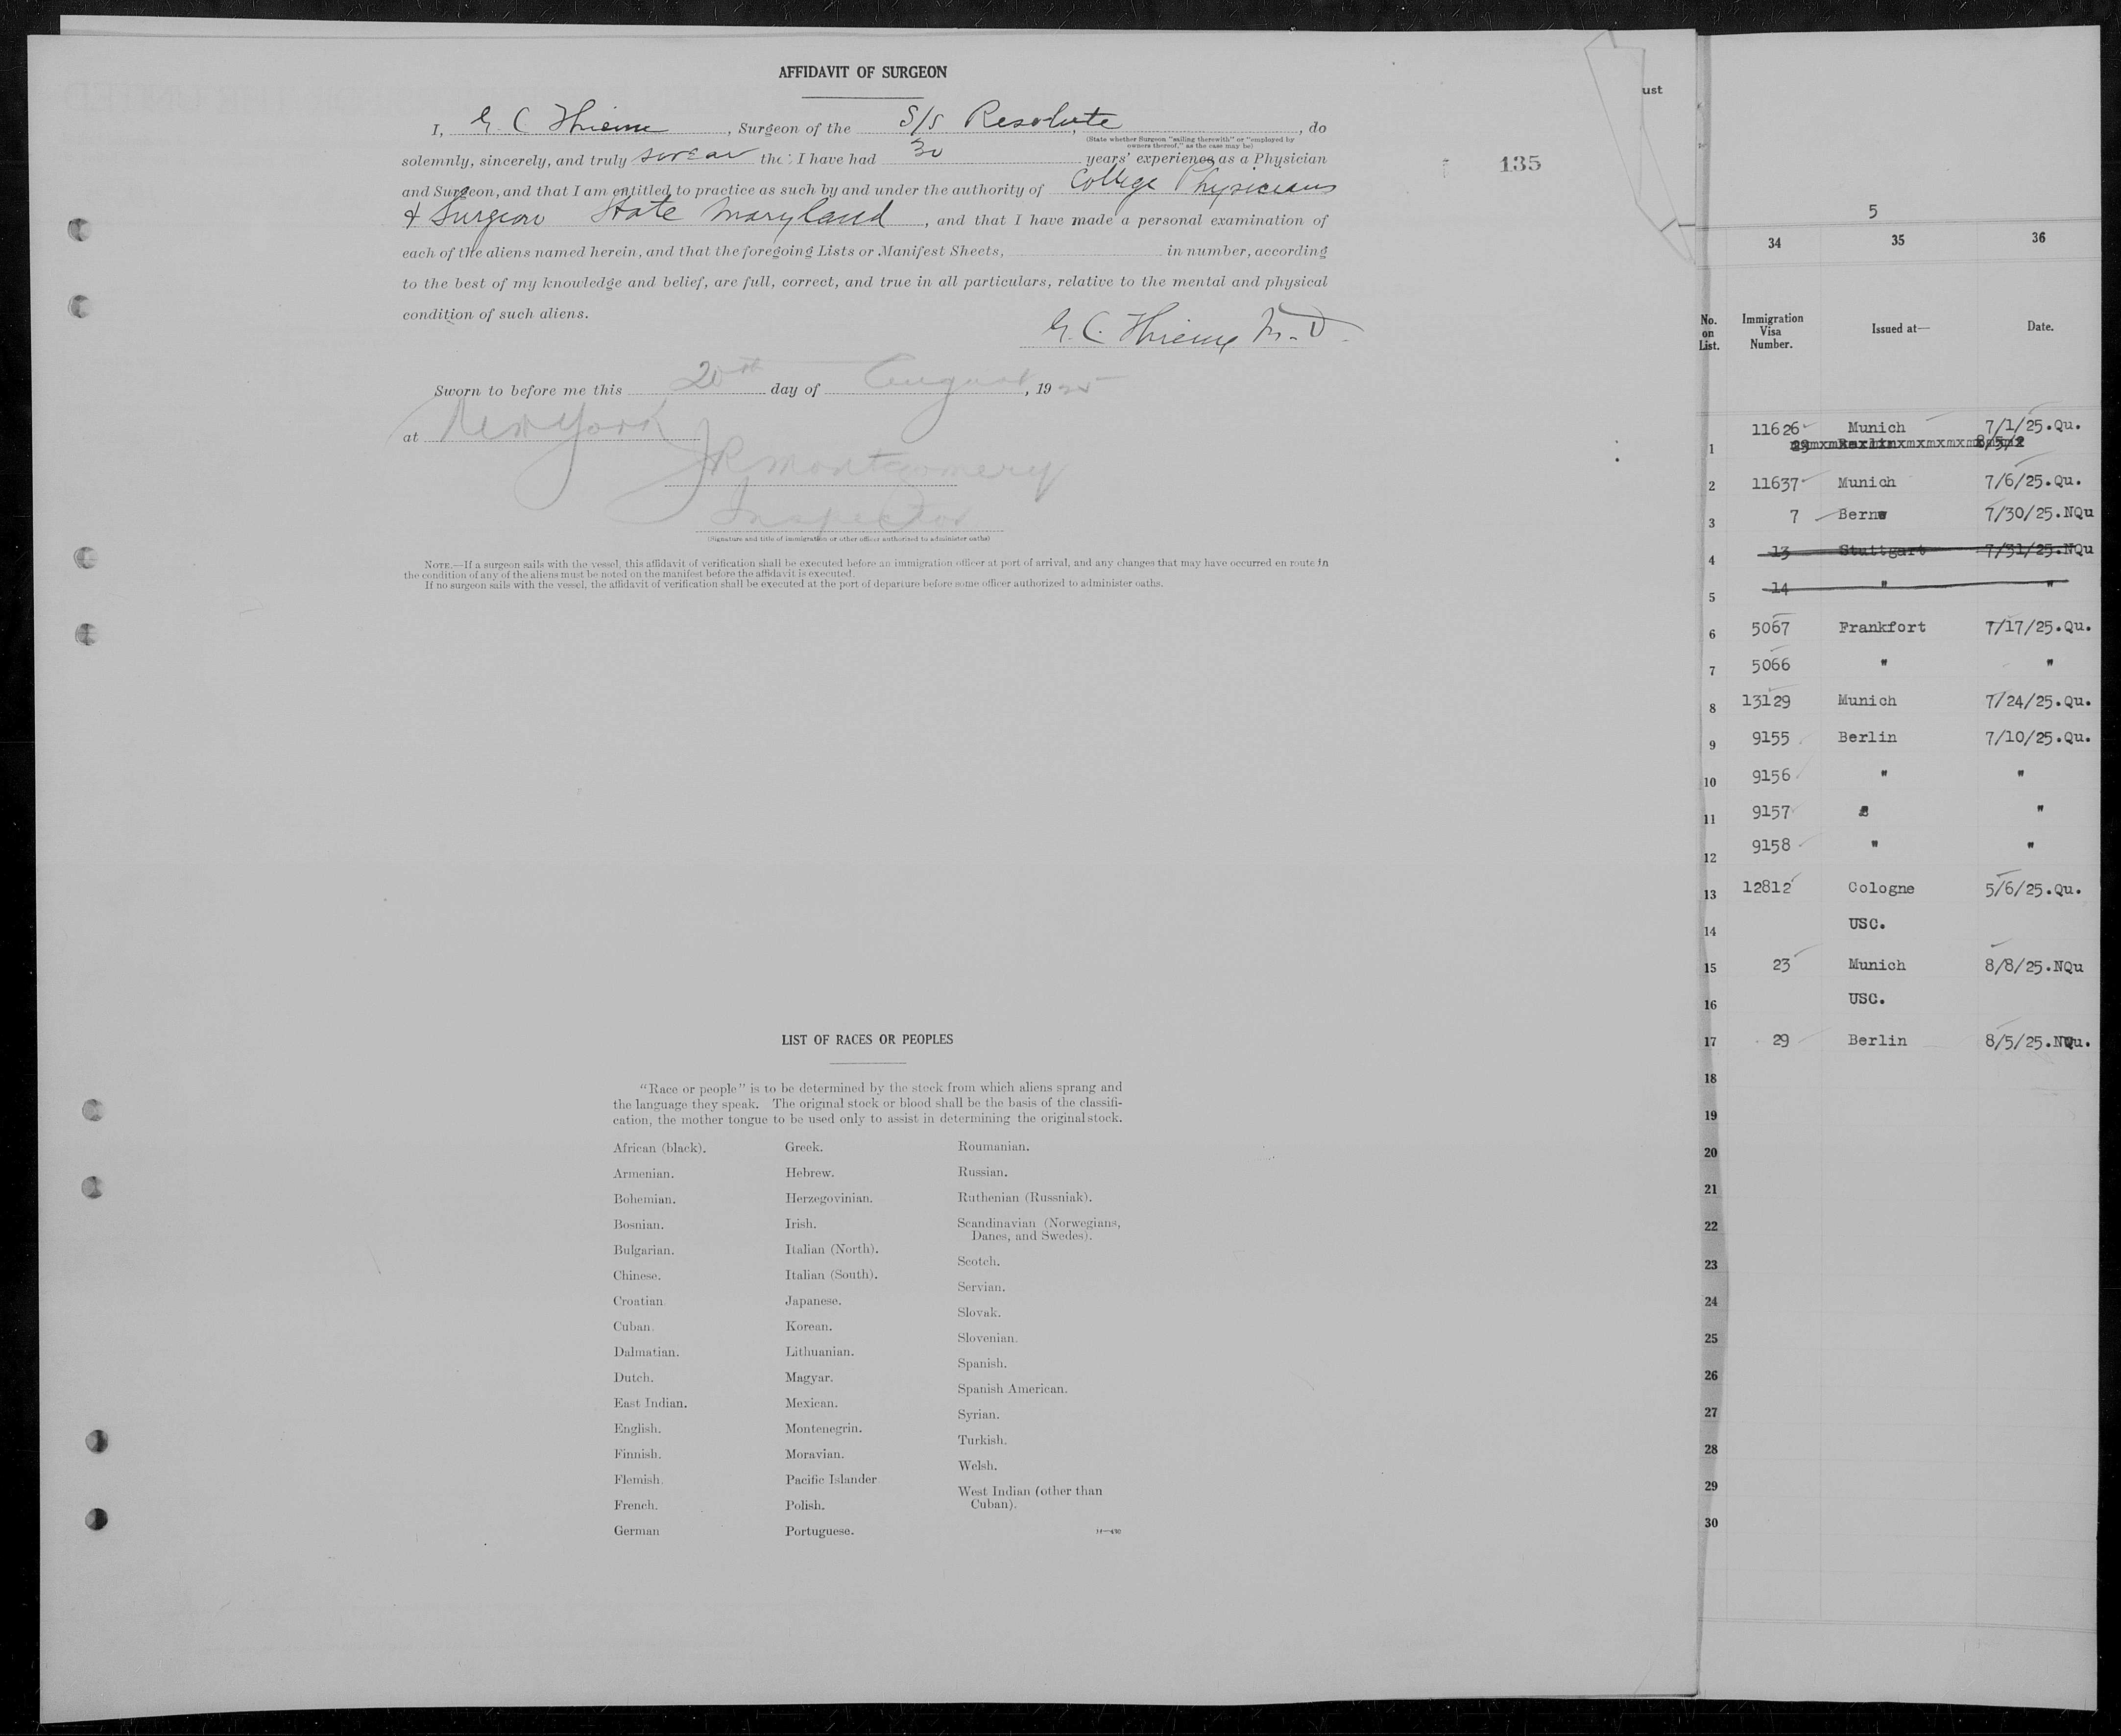 AFFIDAVIT OF SURGEON
I, G. C. Thieme, Surgeon of the S/S Resolute, , do
(State whether Surgeon "sailing therewith" or "employed by
owners thereof," as the case may be)
solemnly, sincerely, and truly swear tha I have had 30 years' experience as a Physician
and Surgeon, and that I am entitled to practice as such by and under the authority of College Physicians
& Surgeon State Maryland, and that I have made a personal examination of
each of the aliens named herein, and that the foregoing Lists or Manifest Sheets, in number, according
to the best of my knowledge and belief, are full, correct, and true in all particulars, relative to the mental and physical
condition of such aliens.
G. C. Thieme M.D.
Sworn to before me this 20th day of August, 1925
at New York
J R Montgomery
Inspector
(Signature and title of immigration or other officer authorized to administer oaths)
NOTE.—If a surgeon sails with the vessel, this affidavit of verification shall be executed before an immigration officer at port of arrival, and any changes that may have occurred en route in
the condition of any of the aliens must be noted on the manifest before the affidavit is executed.
If no surgeon sails with the vessel, the affidavit of verification shall be executed at the port of departure before some officer authorized to administer oaths.
LIST OF RACES OR PEOPLES
"Race or people" is to be determined by the stock from which aliens sprang and
the language they speak. The original stock or blood shall be the basis of the classifi-
cation, the mother tongue to be used only to assist in determining the original stock.
African (black).
Armenian.
Bohemian.
Bosnian.
Bulgarian.
Chinese.
Croatian.
Cuban.
Dalmatian.
Dutch.
East Indian.
English.
Finnish.
Flemish.
French.
German
Greek.
Hebrew.
Herzegovinian.
Irish.
Italian (North).
Italian (South).
Japanese.
Korean.
Lithuanian.
Magyar.
Mexican.
Montenegrin.
Moravian.
Pacific Islander
Polish.
Portuguese.
Roumanian.
Russian.
Ruthenian (Russniak).
Scandinavian (Norwegians,
Danes, and Swedes).
Scotch.
Servian.
Slovak.
Slovenian.
Spanish.
Spanish American.
Syrian.
Turkish.
Welsh.
West Indian (other than
Cuban).
ust
135
5
34 35 36
No. on List. Immigration Visa Number. Issued at— Date.
11626 Munich 7/1/25.Qu.
1 29 Berlin 8/5/2
2 11637 Munich 7/6/25.Qu.
3 7 Berne 7/30/25.NQu
4 13 Stuttgart 7/31/25.NQu
5 14 " "
6 5067 Frankfort 7/17/25.Qu.
7 5066 " "
8 13129 Munich 7/24/25.Qu.
9 9155 Berlin 7/10/25.Qu.
10 9156 " "
11 9157 "
12 9158 " "
13 12812 Cologne 5/6/25.Qu.
14 USC.
15 23 Munich 8/8/25.NQu
16 USC.
17 29 Berlin 8/5/25.NQu.
18
19
20
21
22
23
24
25
26
27
28
29
30